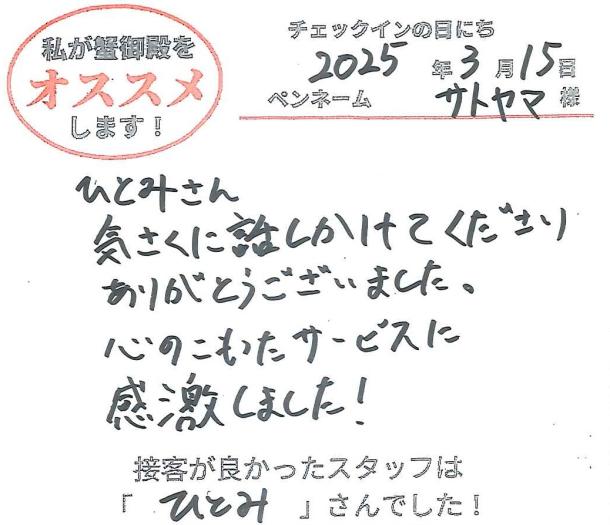 私が蟹御殿を
オススメ
します！
チェックインの日にち
2025年3月15日
ペンネーム サトヤマ様
ひとみさん
気さくに話しかけてくださり
ありがとうございました。
心のこもったサービスに
感激しました！
接客が良かったスタッフは
「ひとみ」さんでした！